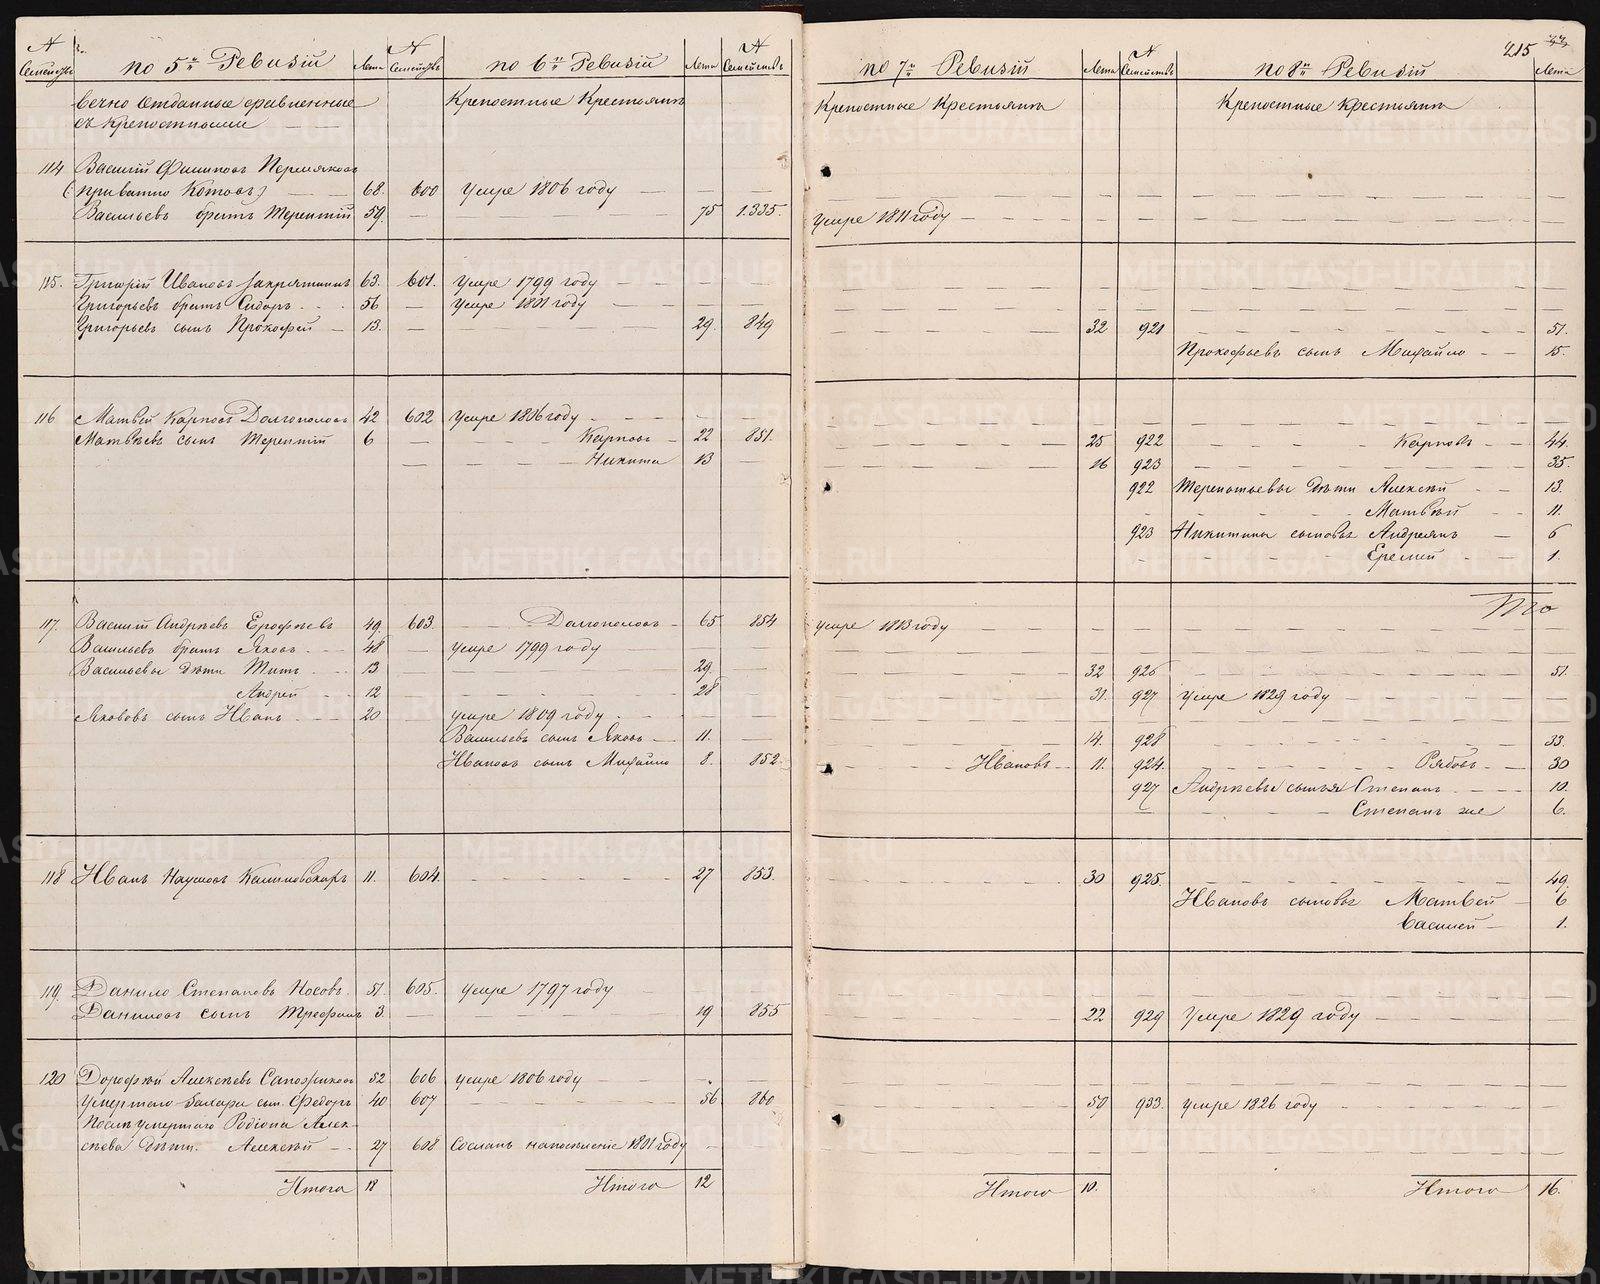 215
№ Семействъ по 5й Ревизіи Лета № Семействъ по 6й Ревизіи Лета № Семействъ по 7й Ревизіи Лета № Семействъ по 8й Ревизіи Лета
вечно отданные сравненные Крепостные Крестьяня Крепостные Крестьяня Крепостные Крестьяня
съ крепостными — —
114 Василий Филипов Пермяков
(приватно Котов) — — 68. 600 Умре 1806 году — — —
Васильевъ братъ Терентій 59. — — 75 1.335. умре 1811 году — —
115. Григорій Иванов 63. 601. Умре 1799 году — —
Григорьевъ братъ Сидоръ . . 56 — Умре 1801 году
Григорьевъ сынъ Прокофей — 13. — — 29. 849 — 32 921 — 51.
Прокофьевъ сынъ Михайло — — 15.
116 Матвей Карпов Долгополов 42 602 Умре 1806 году . — —
Матвеевъ сынъ Терентій 6 — — Карпов — 22 851. — 25 922 — Карповъ — — 44.
— — Никита 13 — — 16 923 — 35.
922 Терентьевы дети Алексей — 13.
— Матвей — — 11.
923 Никитины сыновья Андреянъ — 6
— Еремей — 1.
117. Василий Андреевъ Ерофеевъ 49. 603. — Долгополов — 65 854 умре 1813 году — —
Васильевъ братъ Яков . — 48 — умре 1799 году
Васильевы дети Титъ . . 13 — 29. — — 32 926 — 51.
Андрей — 12 — 28 — 31. 927 умре 1829 году —
Яковов сынъ Иванъ — — 20 умре 1809 году . —
Васильевъ сынъ Яков — 11. — — 14. 928 — 33.
Иванов сынъ Михайло 8. 852. — Ивановъ — 11. 924. — Рябовъ — — 30
927 Андреевы сынья Степанъ — — 10.
— Степанъ же 6.
118 Иванъ Наумов 11. 604. — 27 853. — 30 925. — 49.
Ивановъ сыновья Матвей — 6
Василей — 1.
119. Данило Степановъ Носовъ. 51. 605. умре 1797 году
Данилов сынъ Трефилъ 3. — — 19 855 — 22 929 Умре 1829 году — —
120 Дорофей Алексеевъ Сапожников 52 606 умре 1806 году — —
Умершаго Захара сын. Федоръ 40 607 — 56 860 — 50 933. умре 1826 году —
После умершаго Родиона Алек-
сеева дети. Алексей — . 27 608 Сосланъ на поселеніе 1801 году —
Итого 18 Итого 12 Итого 10. Итого 16.
METRIKI.GASO-URAL.RU